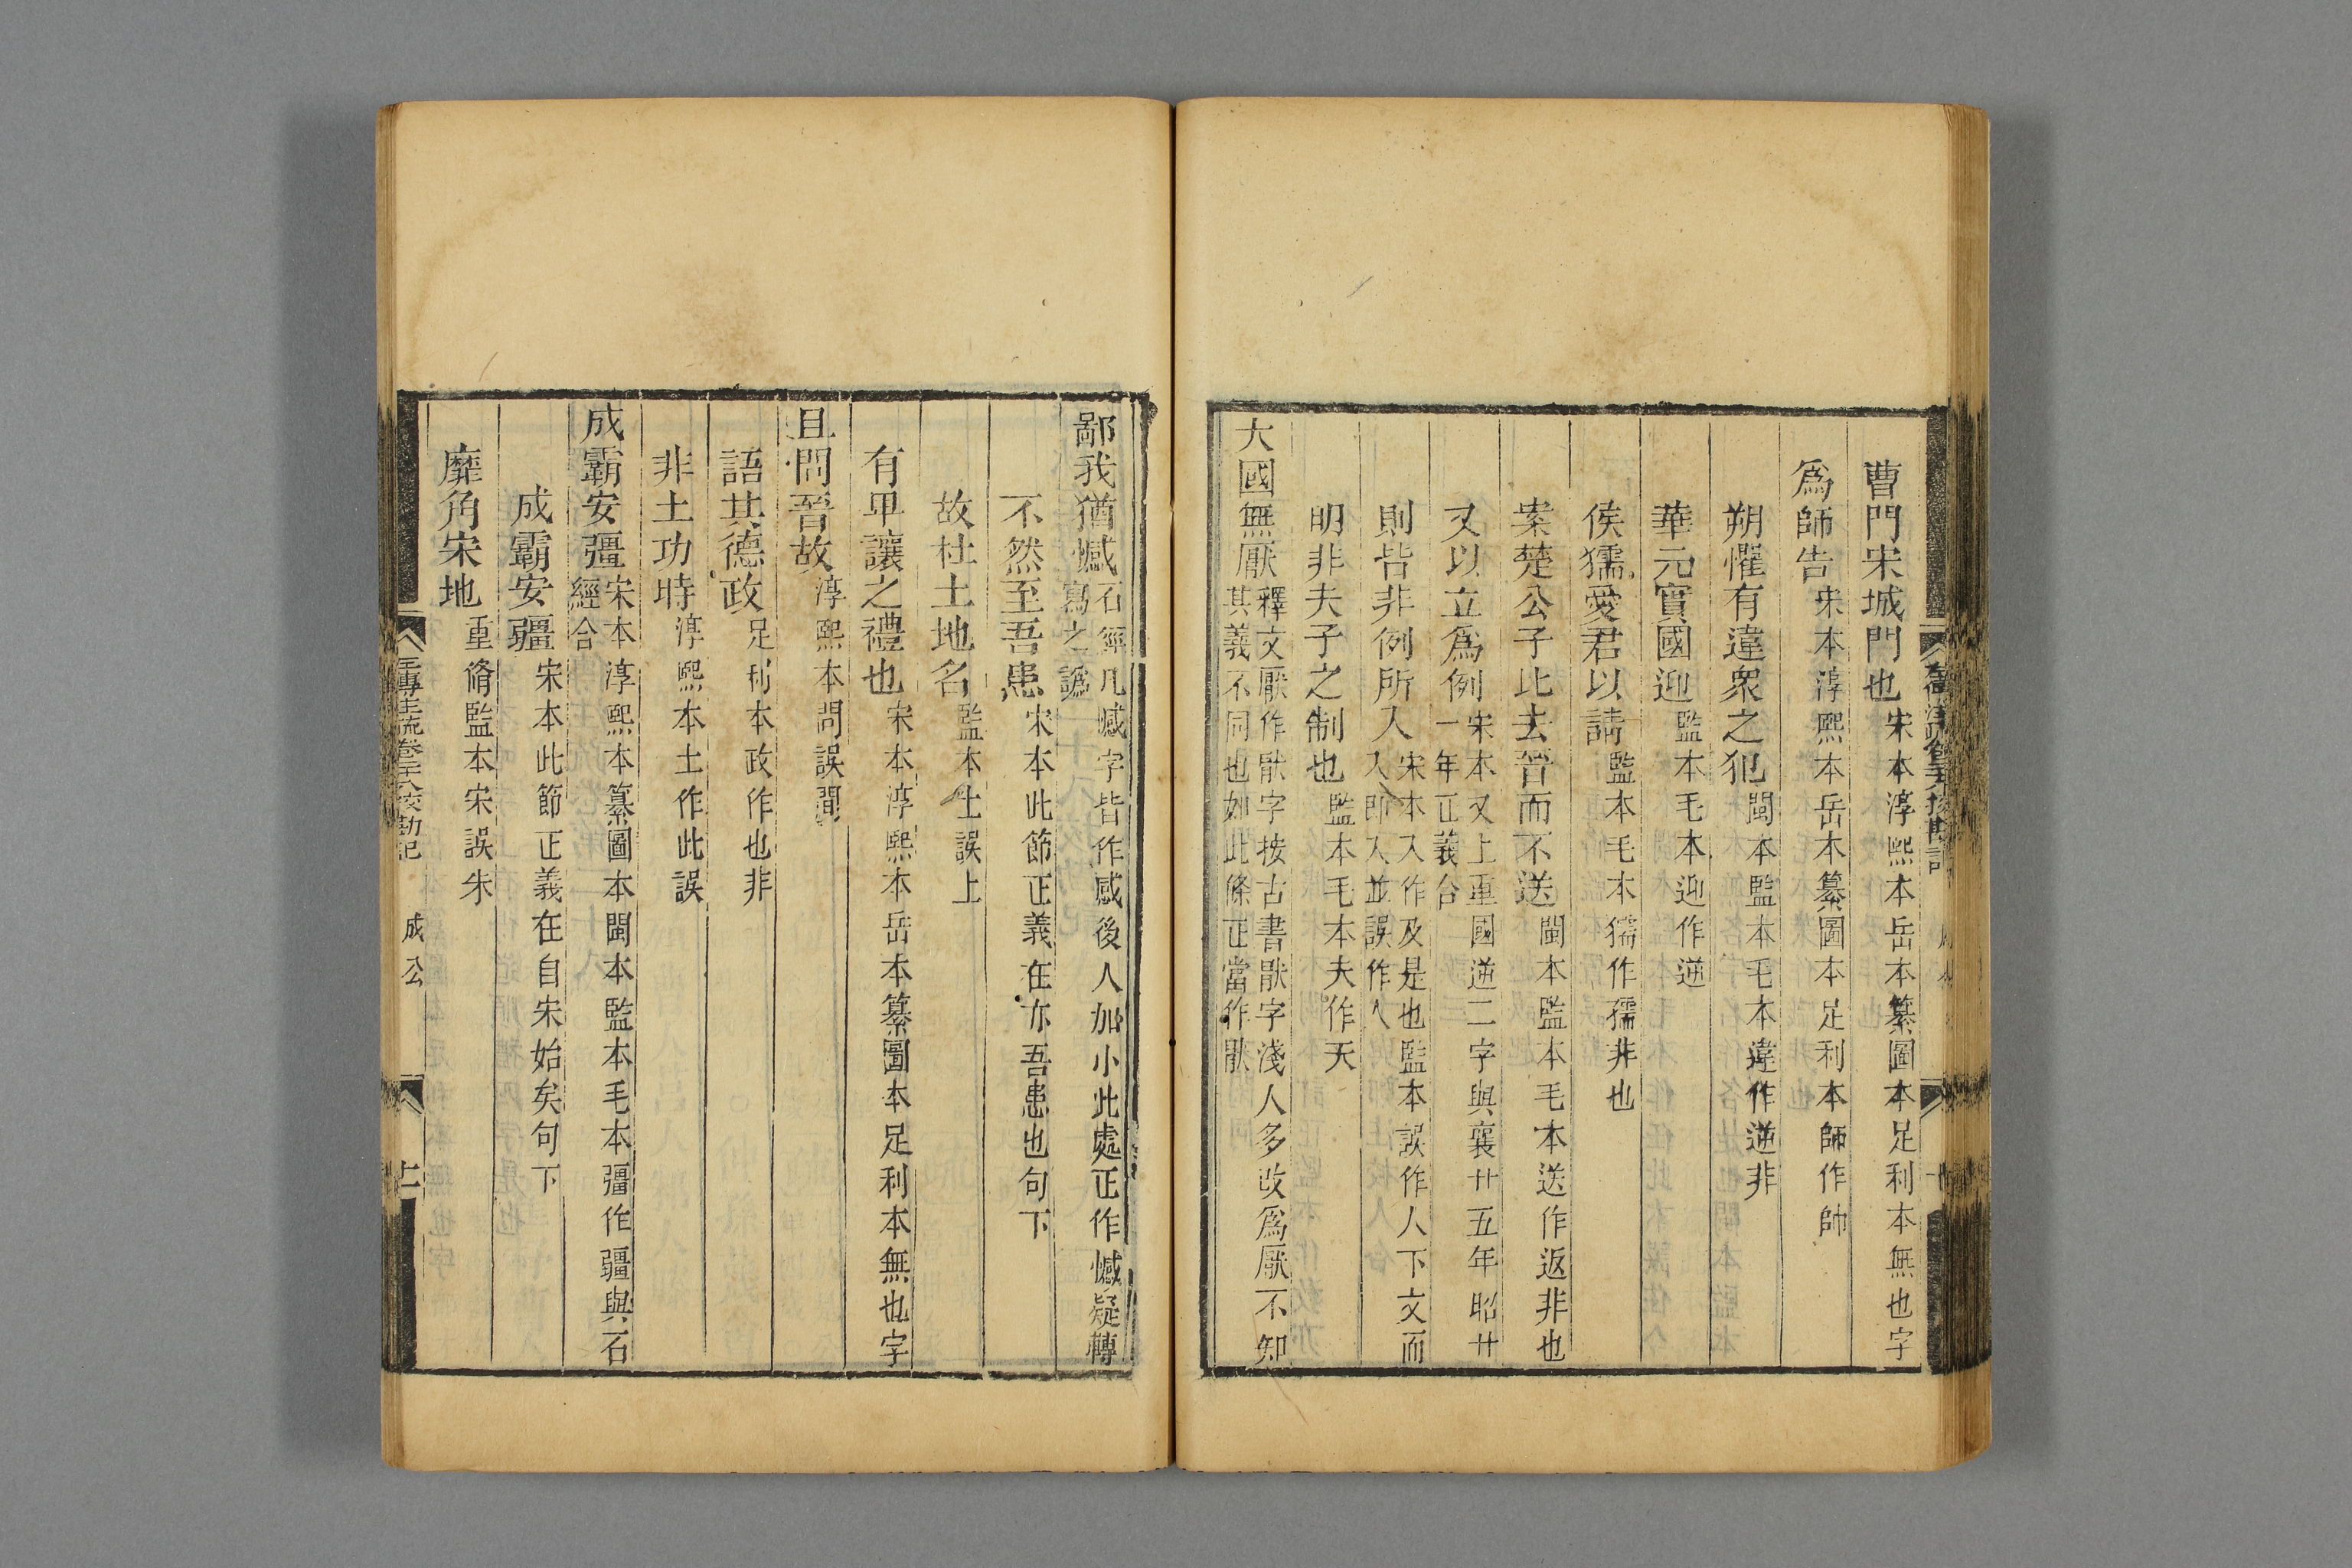 曹門宋城門也宋本淳熙本岳本纂圖本足利本無也字
爲師告宋本淳熙本岳本纂圖本足利本師作帥
朔懼有違衆之犯閩本監本毛本違作逆非
華元實國迎監本毛本迎作逆
侯獳愛君以請監本毛本獳作孺非也
案楚公子比去晉而不送閩本監本毛本送作返非也
又以立爲例宋本又上重國逆二字與襄廿五年昭廿
一年正義合
則皆非例所入宋本入作及是也監本誤作人下文而
入即入並誤作人
明非夫子之制也監本毛本夫作天
大國無厭釋文厭作猒字按古書猒字淺人多改爲厭不知
其義不同也如此條正當作猒
鄙我猶憾石經凡憾字皆作感後人加小此處正作憾疑轉
寫之譌
不然至吾患宋本此節正義在亦吾患也句下
故杜土地名監本土誤上
有卑讓之禮也宋本淳熙本岳本纂圖本足利本無也字
且問晉故淳熙本問誤間
語其德政足利本政作也非
非土功時淳熙本土作此誤
成霸安彊宋本淳熙本纂圖本閩本監本毛本彊作疆與石
經合
成霸安疆宋本此節正義在自宋始矣句下
靡角宋地重脩監本宋誤朱
左傳注疏卷二十六校勘記 成公 十一